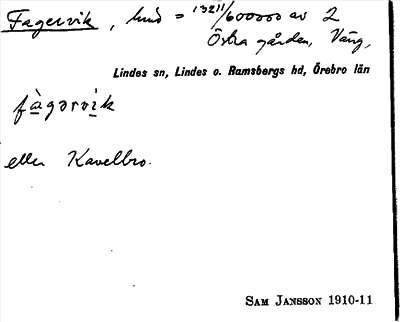 Fagervik, lund = 13211/600000 av 2
Östra gården, Väng,
Lindes sn, Lindes o. Ramsbergs hd, Örebro län
fàgərvìk
eller Kavelbro.
SAM JANSSON 1910-11